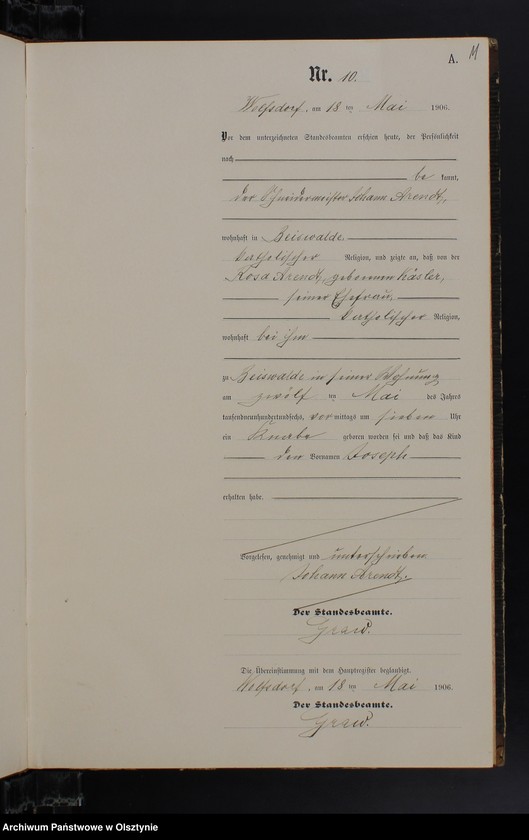 A. 11
Nr. 10.
Wolfsdorf, am 18 ten Mai 1906.
Vor dem unterzeichneten Standesbeamten erschien heute, der Persönlichkeit
nach
be kannt,
der Schneidermeister Johann Arendt,
wohnhaft in Beiswalde
katholischer Religion, und zeigte an, daß von der
Rosa Arendt, geborenen Käsler,
seiner Ehefrau,
katholischer Religion,
wohnhaft bei ihm
zu Beiswalde in seiner Wohnung
am zwölf ten Mai des Jahres
tausendneunhundertundsechs, vor mittags um sieben Uhr
ein Knabe geboren worden sei und daß das Kind
den Vornamen Joseph
erhalten habe.
Vorgelesen, genehmigt und unterschrieben
Johann Arendt.
Der Standesbeamte.
Graw.
Die Übereinstimmung mit dem Hauptregister beglaubigt.
Wolfsdorf, am 18 ten Mai 1906.
Der Standesbeamte.
Graw.
Archiwum Państwowe w Olsztynie